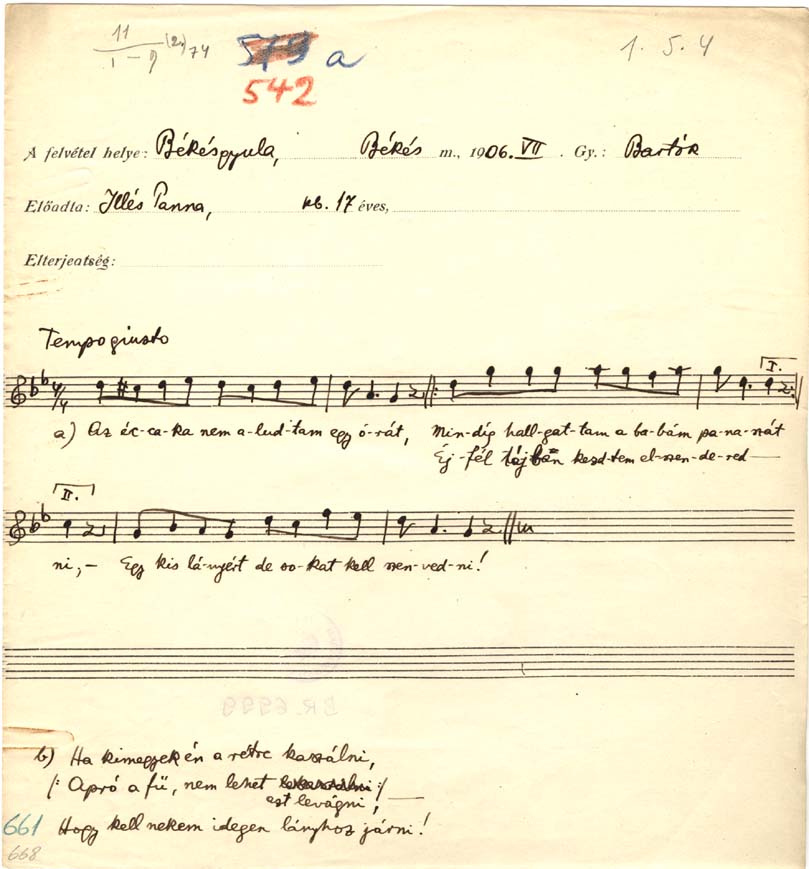 11 (2x) 74
1 - 9
579 a
542
1. 5. 4
A felvétel helye: Békésgyula, Békés m., 1906. VII. Gy.: Bartók
Előadta: Illés Panna, kb. 17 éves,
Elterjeatség:
Tempo giusto
I.
4/4
a) Az éc-ca-ka nem a-lud-tam egy ó-rát, Min-díg hall-gat-tam a ba-bám pa-na-szát
Éj-fél táj-bán kezd-tem el-szen-de-red —
II.
ni,- Egy kis lá-nyért de so-kat kell szen-ved-ni!
BR. 6999
b) Ha kimegyek én a rétre kaszálni,
/: Apró a fű, nem lehet lekaszálni :/ —
ezt levágni,
661 Hogy kell nekem idegen lányhoz járni!
668